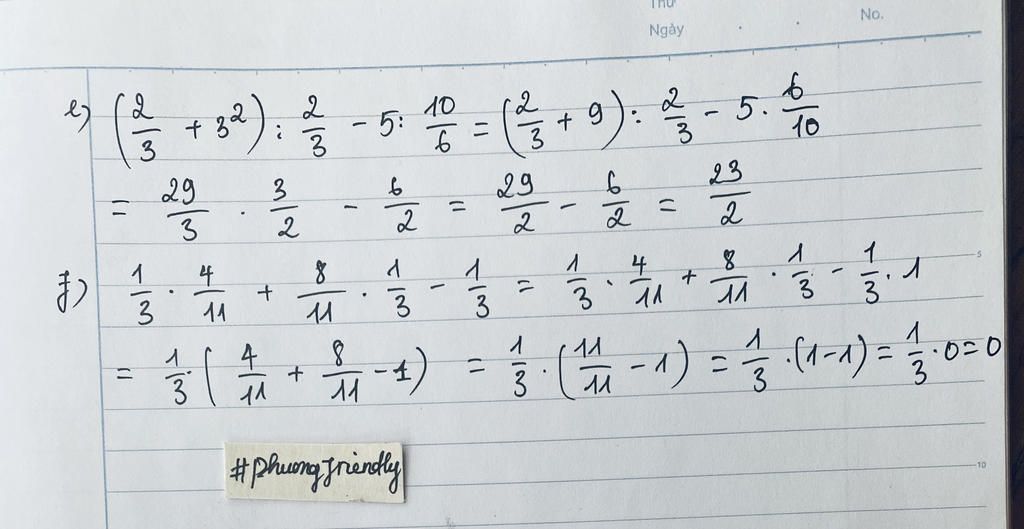 Thứ
Ngày
No.
e) (2/3 + 3²) : 2/3 - 5 : 10/6 = (2/3 + 9) : 2/3 - 5 . 6/10
= 29/3 . 3/2 - 6/2 = 29/2 - 6/2 = 23/2
f) 1/3 . 4/11 + 8/11 . 1/3 - 1/3 = 1/3 . 4/11 + 8/11 . 1/3 - 1/3 . 1
5
= 1/3 . (4/11 + 8/11 - 1) = 1/3 . (11/11 - 1) = 1/3 . (1-1) = 1/3 . 0 = 0
#phuongfriendly
10